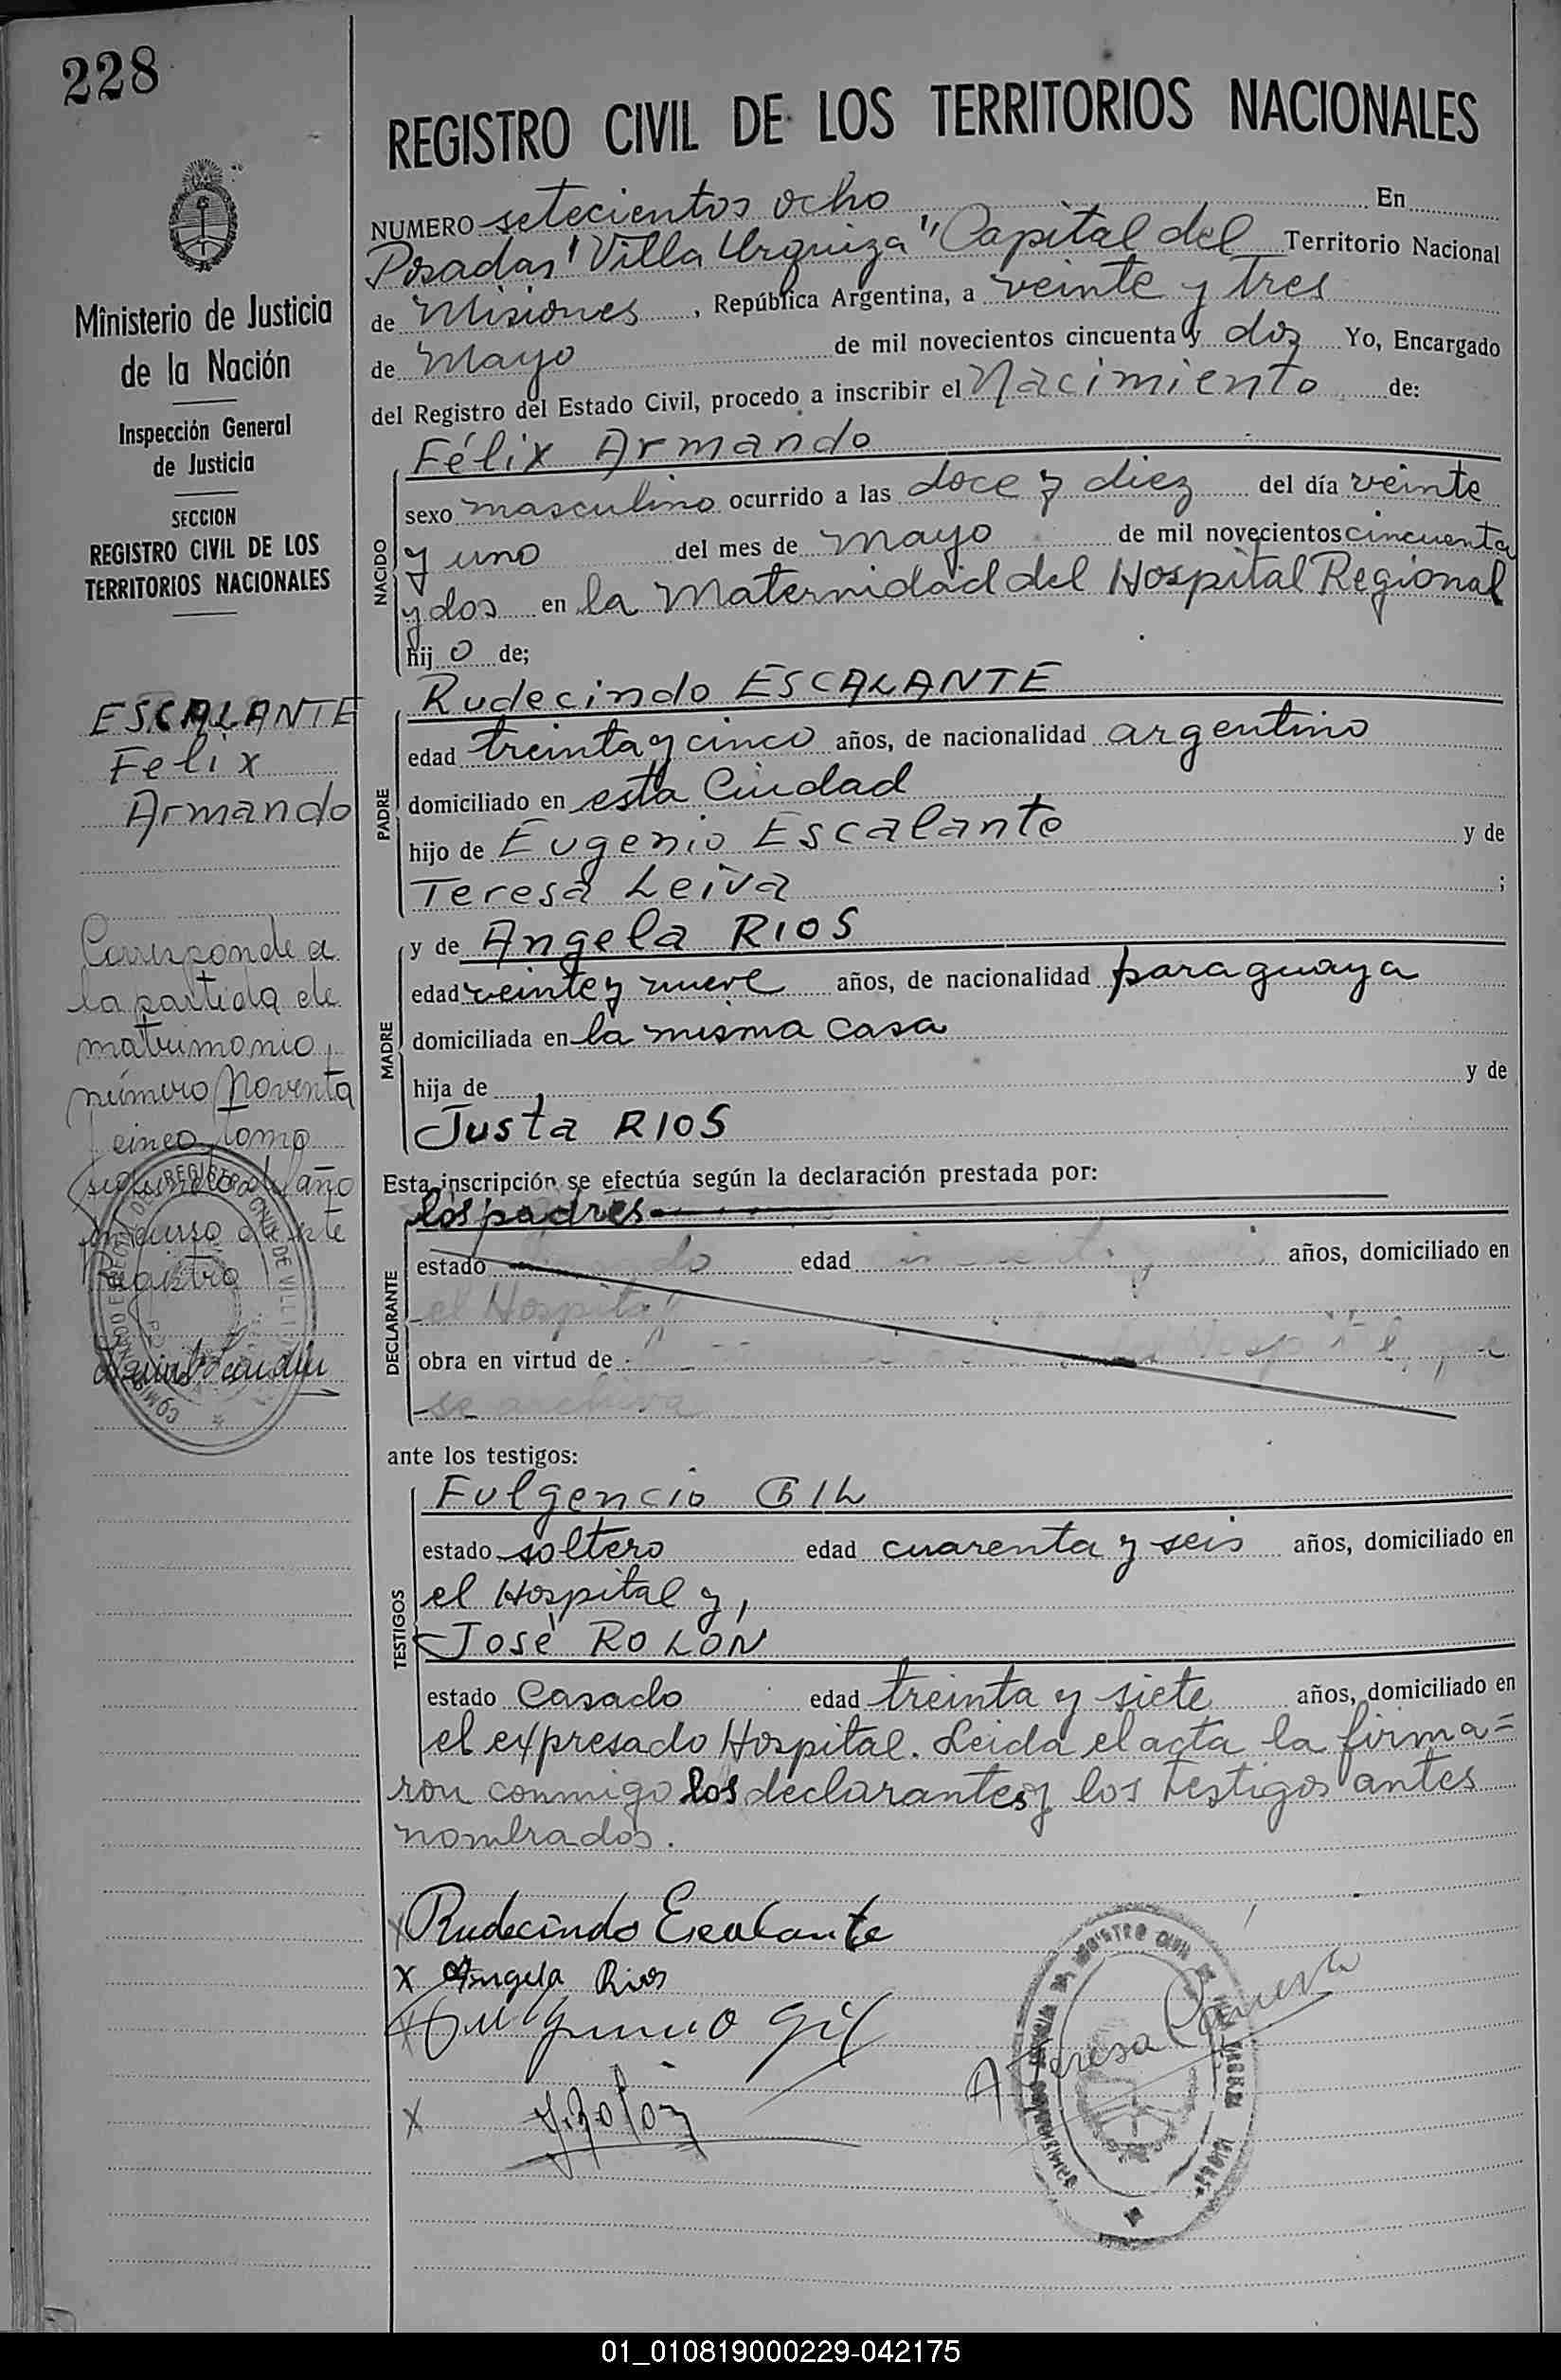 228
REGISTRO CIVIL DE LOS TERRITORIOS NACIONALES
Ministerio de Justicia
de la Nación
Inspección General
de Justicia
SECCION
REGISTRO CIVIL DE LOS
TERRITORIOS NACIONALES
ESCALANTE
Felix
Armando
Corresponde a
la partida de
matrimonio,
número Noventa
y cinco, tomo
segundo del año
en curso de este
Registro
NUMERO setecientos ocho En
Posadas "Villa Urquiza" Capital del Territorio Nacional
de Misiones, República Argentina, a veinte y tres
de Mayo de mil novecientos cincuenta y dos Yo, Encargado
del Registro del Estado Civil, procedo a inscribir el Nacimiento de:
Félix Armando
NACIDO
sexo masculino ocurrido a las doce y diez del día veinte
y uno del mes de mayo de mil novecientos cincuenta
y dos en la Maternidad del Hospital Regional
hijo de;
Rudecindo ESCALANTE
PADRE
edad treinta y cinco años, de nacionalidad argentino
domiciliado en esta Ciudad
hijo de Eugenio Escalante y de
Teresa Leiva ;
y de Angela RIOS
MADRE
edad veinte y nueve años, de nacionalidad paraguaya
domiciliada en la misma casa
hija de y de
Justa RIOS
Esta inscripción se efectúa según la declaración prestada por:
los padres
DECLARANTE
estado edad años, domiciliado en
el Hospital
obra en virtud de
se archiva
ante los testigos:
Fulgencio GIL
TESTIGOS
estado soltero edad cuarenta y seis años, domiciliado en
el Hospital y,
José ROLON
estado Casado edad treinta y siete años, domiciliado en
el expresado Hospital. Leida el acta la firma=
ron conmigo los declarantes y los testigos antes
nombrados.
x Rudecindo Escalante
x Angela Rios
x Fulgencio Gil
x J. Rolon
01_010819000229-042175